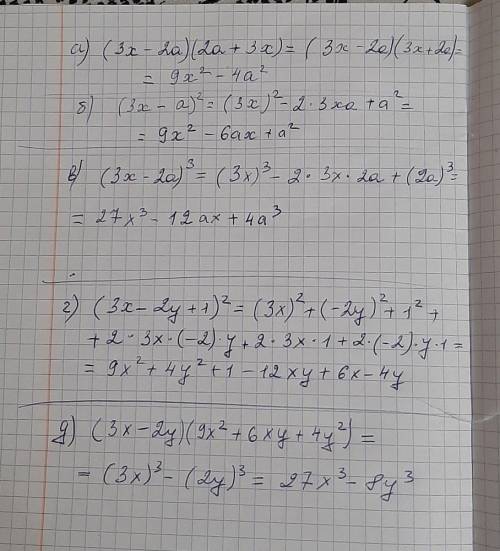 а) (3x - 2a)(2a + 3x) = (3x - 2a)(3x + 2a) =
= 9x² - 4a²
б) (3x - a)² = (3x)² - 2·3xa + a² =
= 9x² - 6ax + a²
в) (3x - 2a)³ = (3x)³ - 2·3x·2a + (2a)³ =
= 27x³ - 12ax + 4a³
г) (3x - 2y + 1)² = (3x)² + (-2y)² + 1² +
+ 2·3x·(-2)·y + 2·3x·1 + 2·(-2)·y·1 =
= 9x² + 4y² + 1 - 12xy + 6x - 4y
д) (3x - 2y)(9x² + 6xy + 4y²) =
= (3x)³ - (2y)³ = 27x³ - 8y³